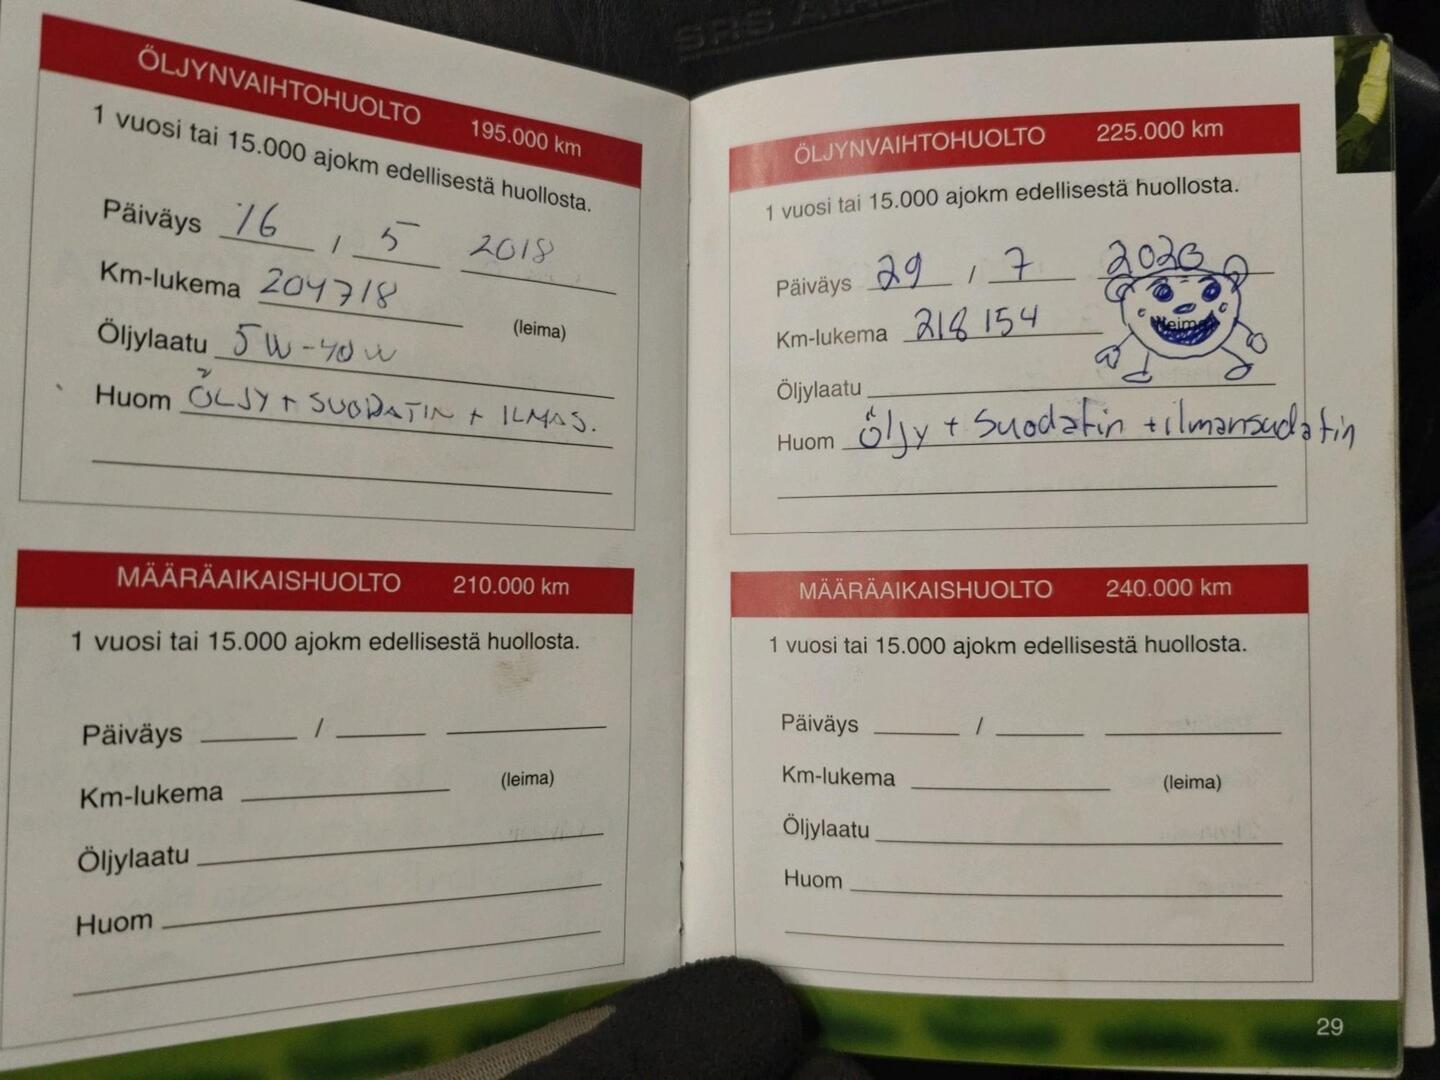 SRS AIRBAG
ÖLJYNVAIHTOHUOLTO 195.000 km
1 vuosi tai 15.000 ajokm edellisestä huollosta.
Päiväys 16 / 5 2018
Km-lukema 204718
(leima)
Öljylaatu 5W-40W
Huom ÖLJY + SUODATIN + ILMAS.
MÄÄRÄAIKAISHUOLTO 210.000 km
1 vuosi tai 15.000 ajokm edellisestä huollosta.
Päiväys /
Km-lukema
(leima)
Öljylaatu
Huom
ÖLJYNVAIHTOHUOLTO 225.000 km
1 vuosi tai 15.000 ajokm edellisestä huollosta.
Päiväys 29 / 7 2020
Km-lukema 218 154
(leima)
Öljylaatu
Huom Öljy + Suodatin + ilmansudatin
MÄÄRÄAIKAISHUOLTO 240.000 km
1 vuosi tai 15.000 ajokm edellisestä huollosta.
Päiväys /
Km-lukema
(leima)
Öljylaatu
Huom
29